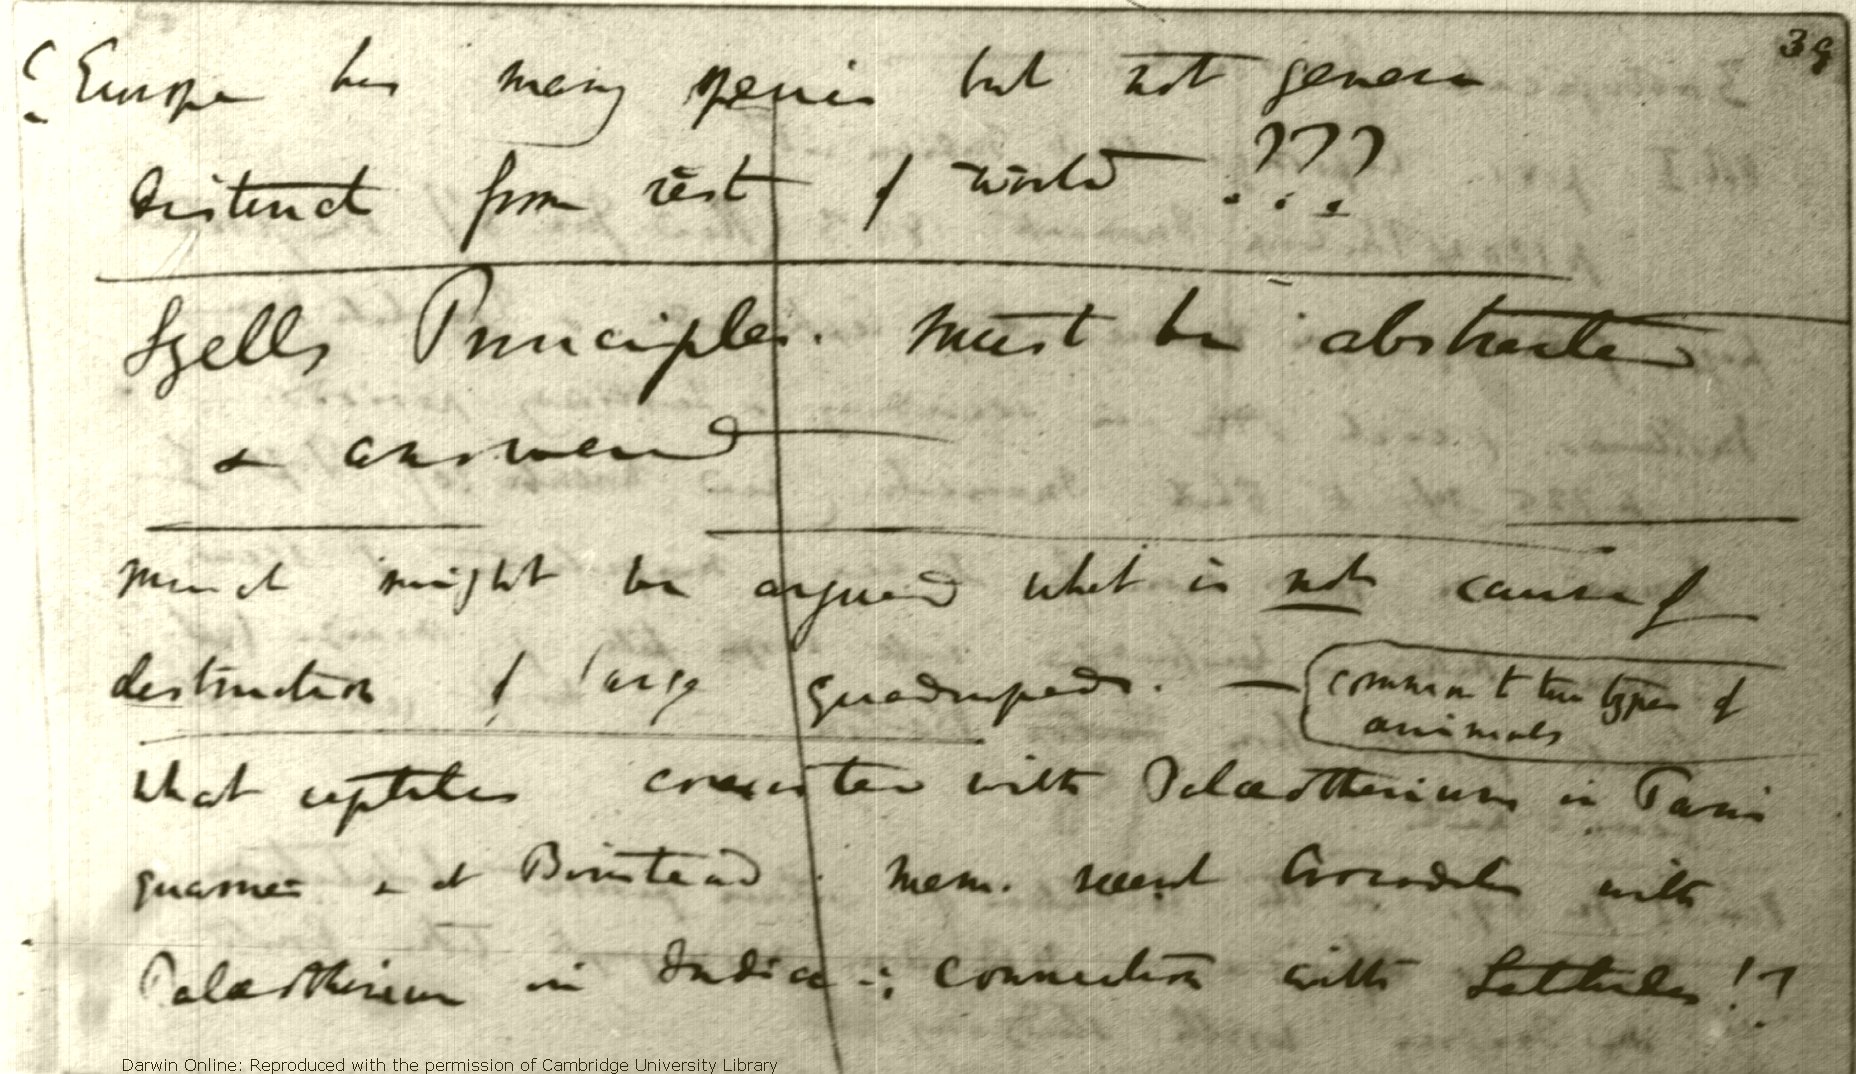 39
? Europe has many species but not genera
distinct from rest of world ???
Lyells Principles. must be abstracted
& answered
Much might be argued what is not cause of
destruction of large quadrupeds. — common to two types of
animals
What reptiles coexisted with Palæotherium in Paris
quarries & at Binstead. Mem. recent Crocodiles with
Palæotherium in India ∴ connection with Latitudes !?
Darwin Online: Reproduced with the permission of Cambridge University Library